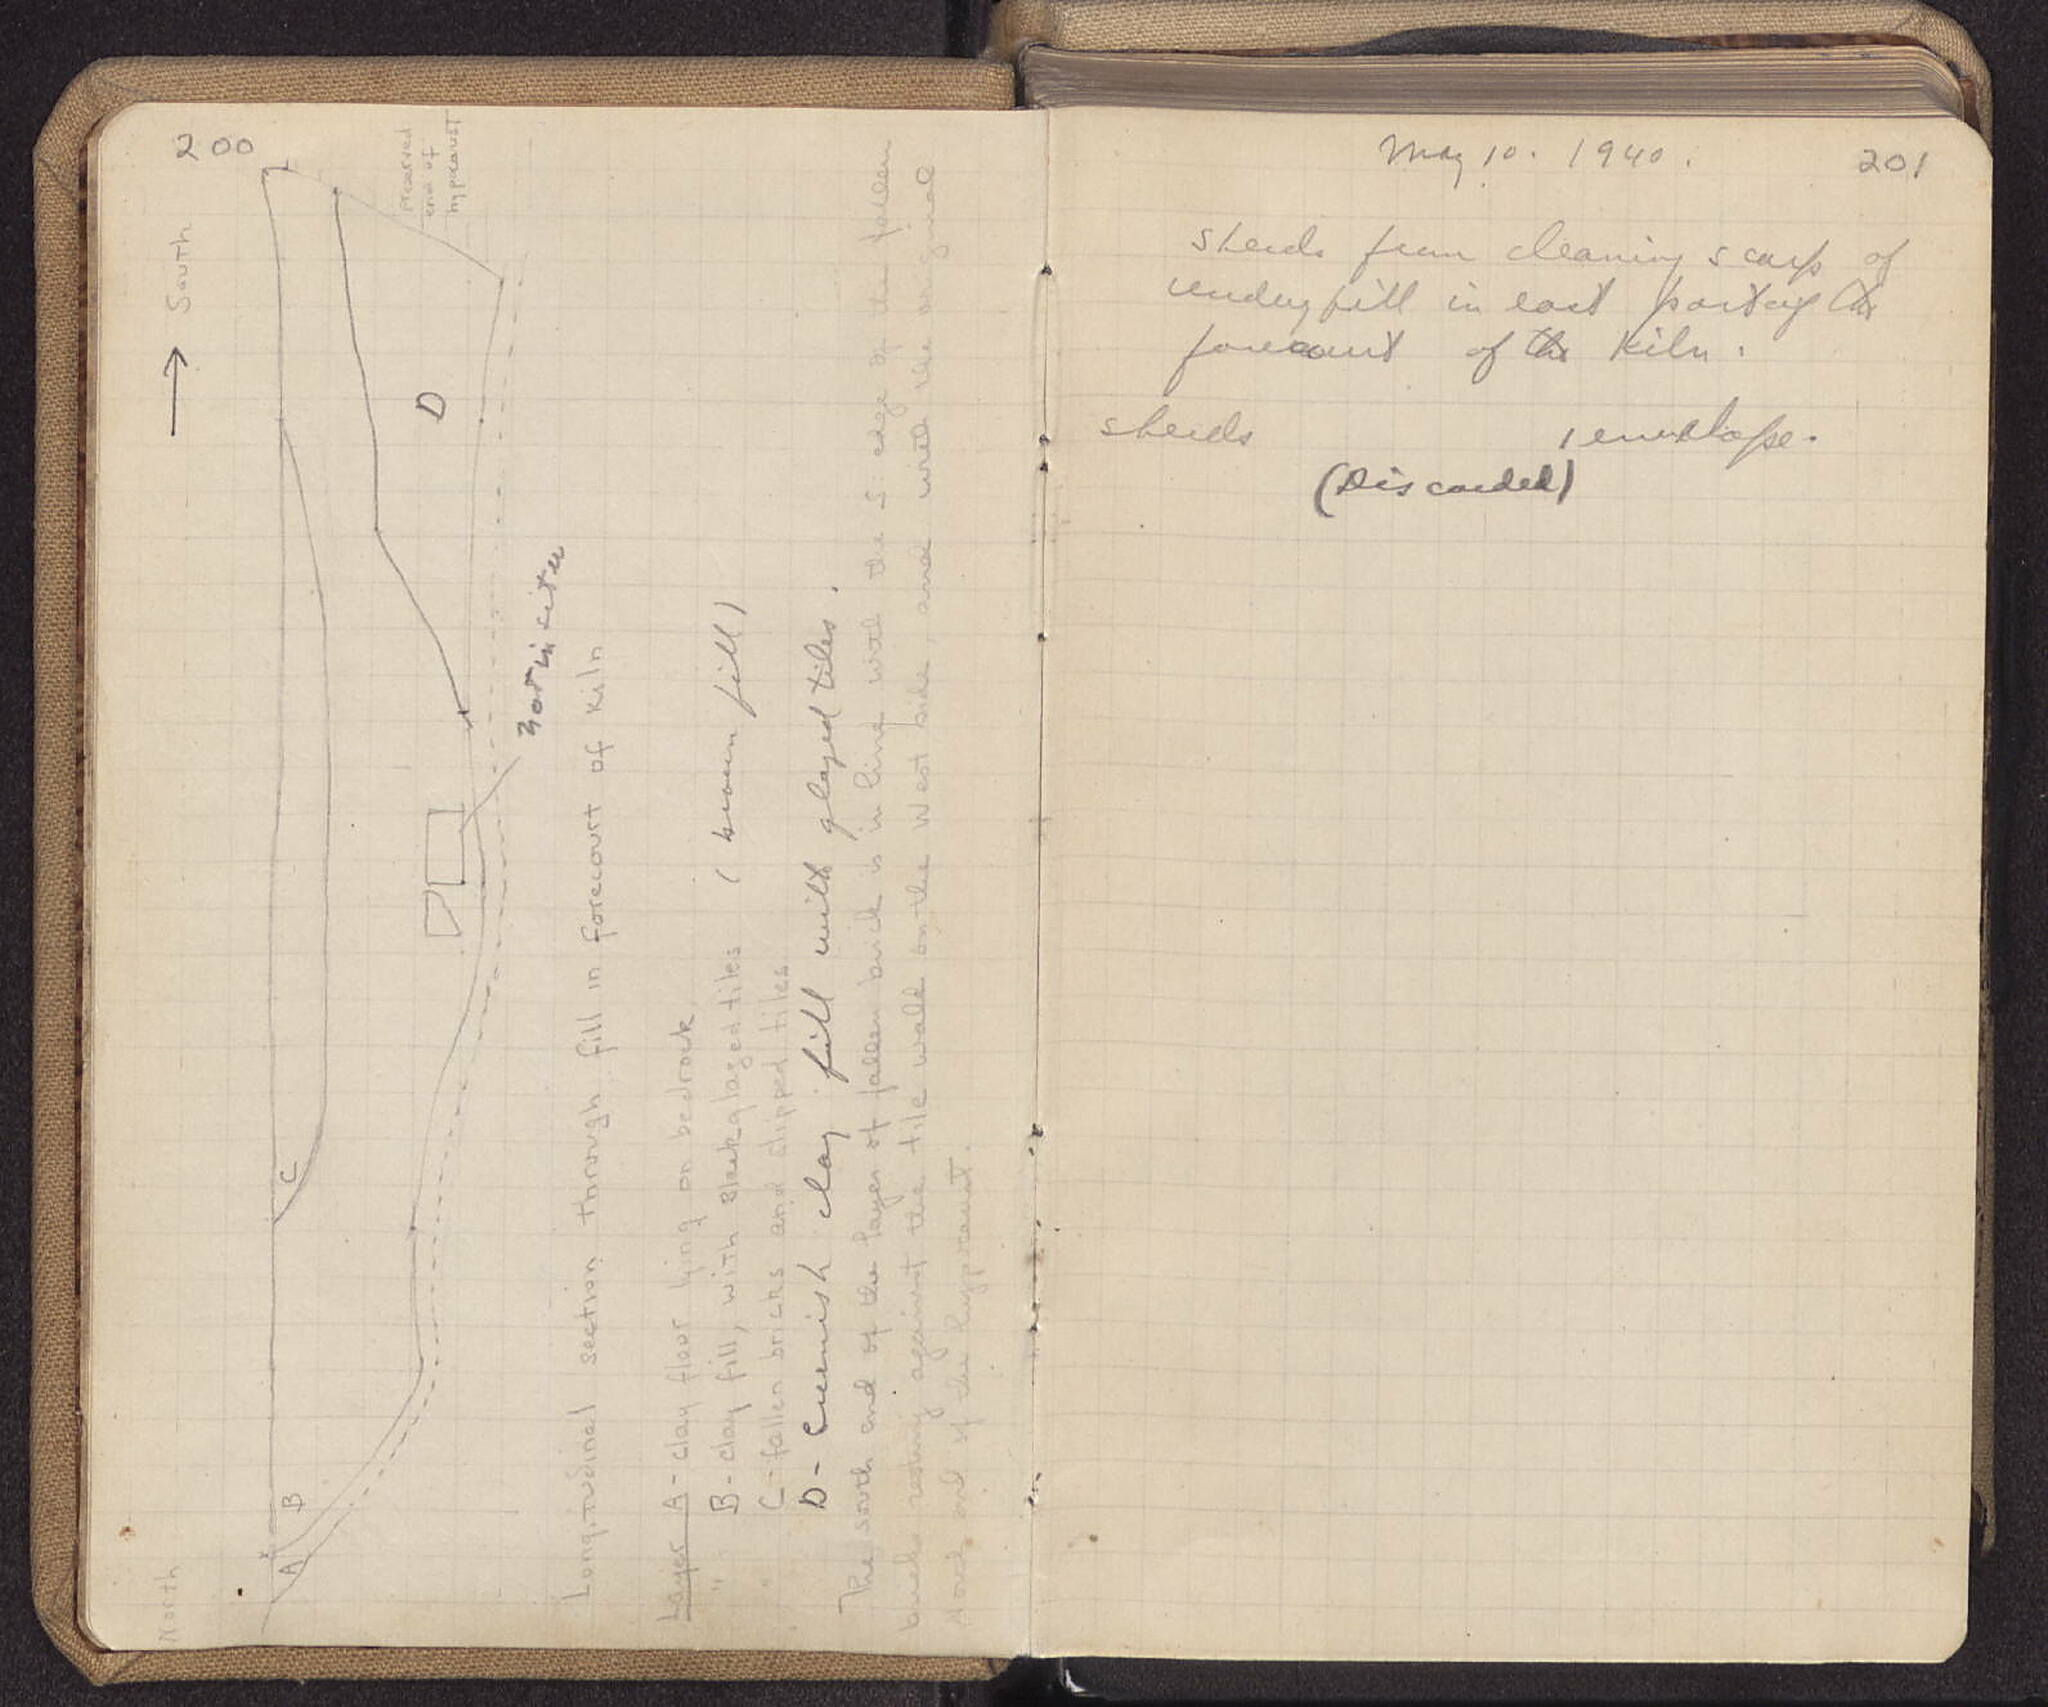 200
North
→ South
Preserved
end of
hypocaust
A
B
C
D
not in situ
Longitudinal section through fill in forecourt of kiln
Layer A - clay floor lying on bedrock.
" B - clay fill, with black glazed tiles (brown fill)
" C - fallen bricks and slipped tiles
D - Greenish clay fill with glazed tiles.
The south end of the layer of fallen brick is in line with the S. edge of the fallen
bricks resting against the tile wall on the West side, and with the original
North end of the hypocaust.
May 10. 1940.
201
sherds from cleaning scarp of
sandy fill in east part of the
forecourt of the kiln.
sherds 1 envelope.
(Discarded)